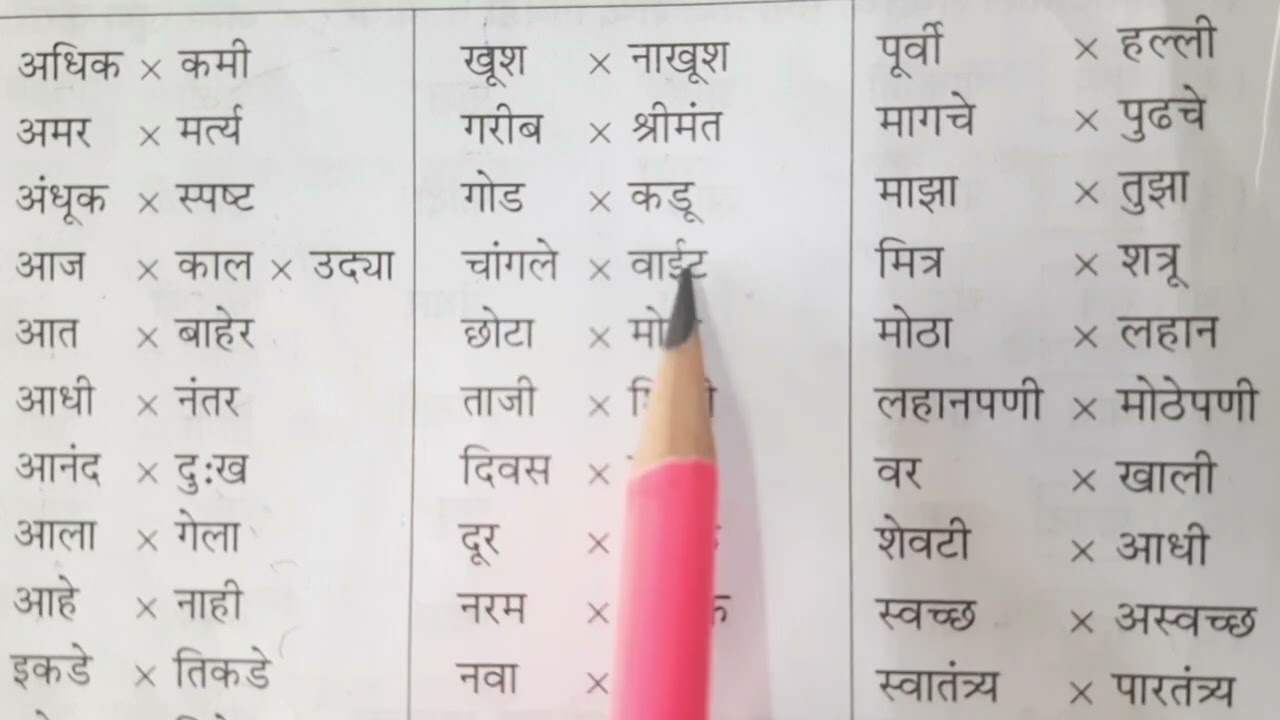 अधिक × कमी
अमर × मर्त्य
अंधूक × स्पष्ट
आज × काल × उद्या
आत × बाहेर
आधी × नंतर
आनंद × दुःख
आला × गेला
आहे × नाही
इकडे × तिकडे
खूश × नाखूश
गरीब × श्रीमंत
गोड × कडू
चांगले × वाईट
छोटा ×
ताजी ×
दिवस ×
दूर ×
नरम ×
नवा ×
पूर्वी × हल्ली
मागचे × पुढचे
माझा × तुझा
मित्र × शत्रू
मोठा × लहान
लहानपणी × मोठेपणी
वर × खाली
शेवटी × आधी
स्वच्छ × अस्वच्छ
स्वातंत्र्य × पारतंत्र्य